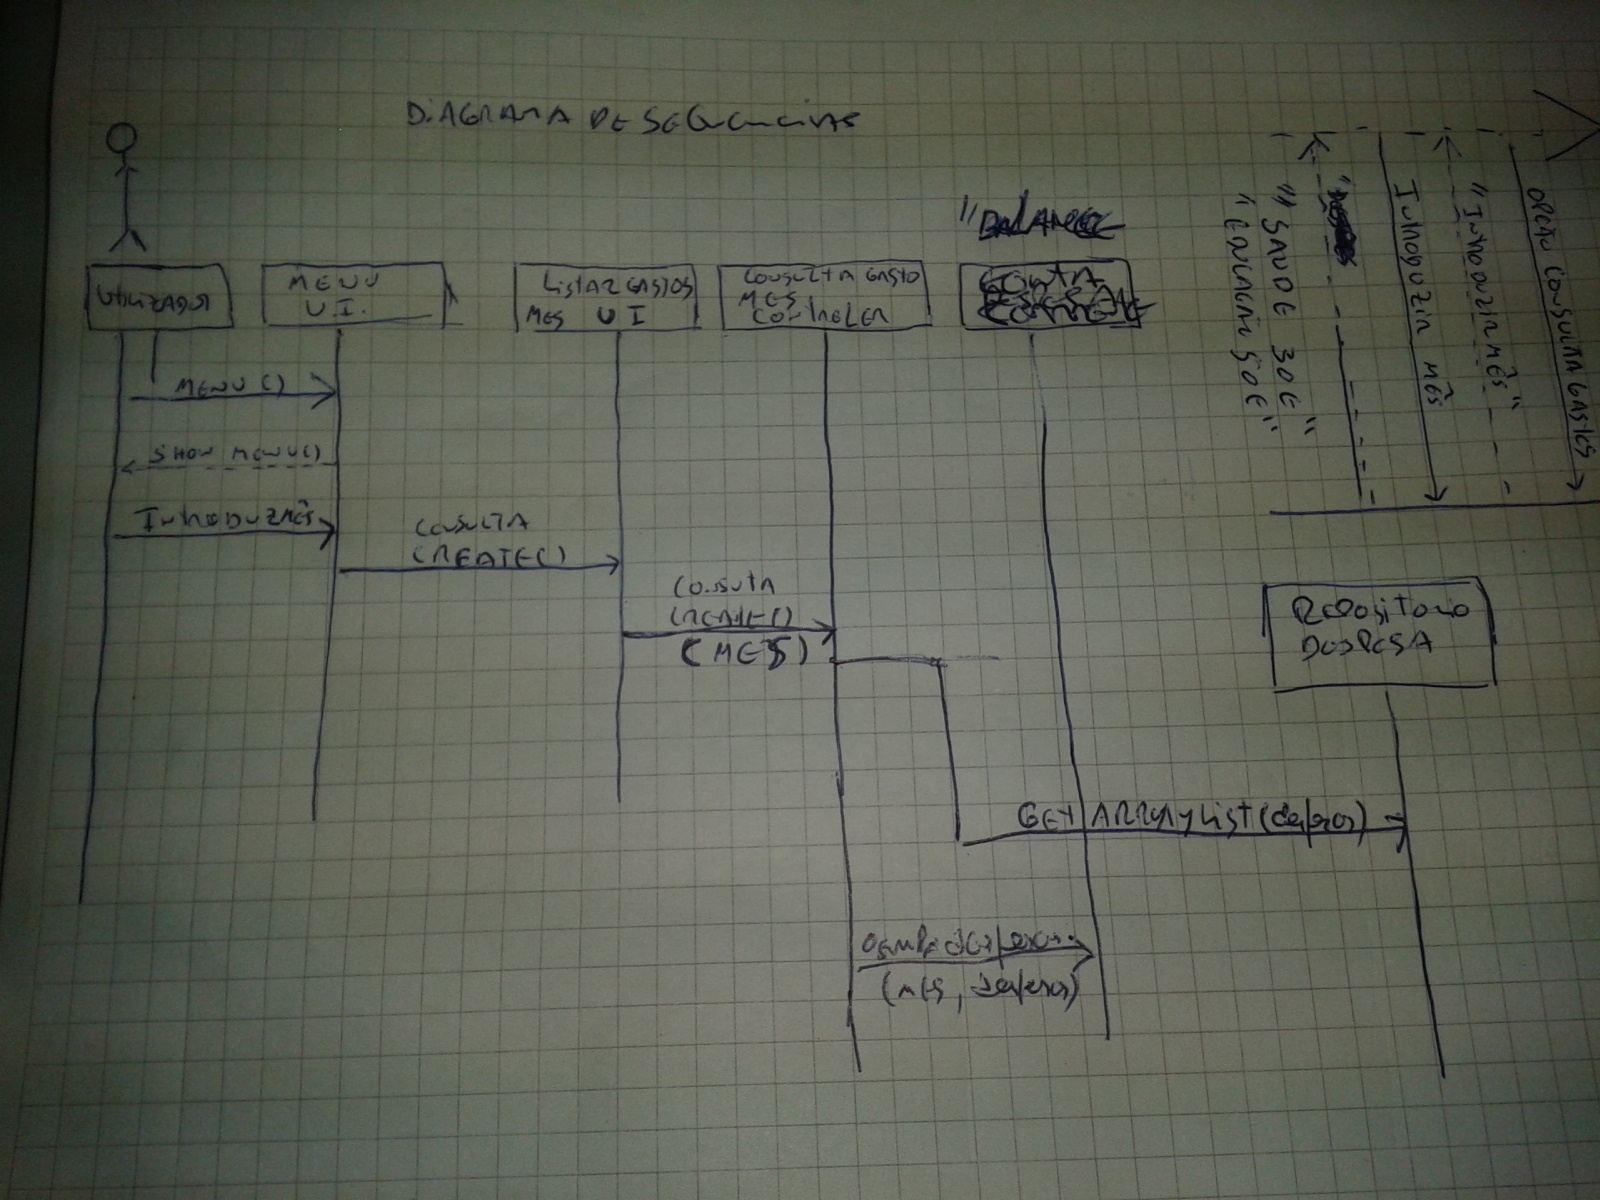 DIAGRAMA DE SEQUENCIAS
UTILIZADOR
MENU
U.I.
LISTAR GASTOS
MES UI
CONSULTA GASTO
MES
CONTROLER
"BALANCE
CONTA
MENU()
SHOW MENU()
INTRODUZ MÊS
CONSULTA
CREATE()
CONSULTA
CREATE()
(MES)
REPOSITORIO
DESPESA
GET ARRAYLIST(
(MES,
OPCAO CONSULTA GASTOS
"INTRODUZIR MÊS"
INTRODUZIR MÊS
"SAUDE 30€"
"EDUCAÇÃO 50€"